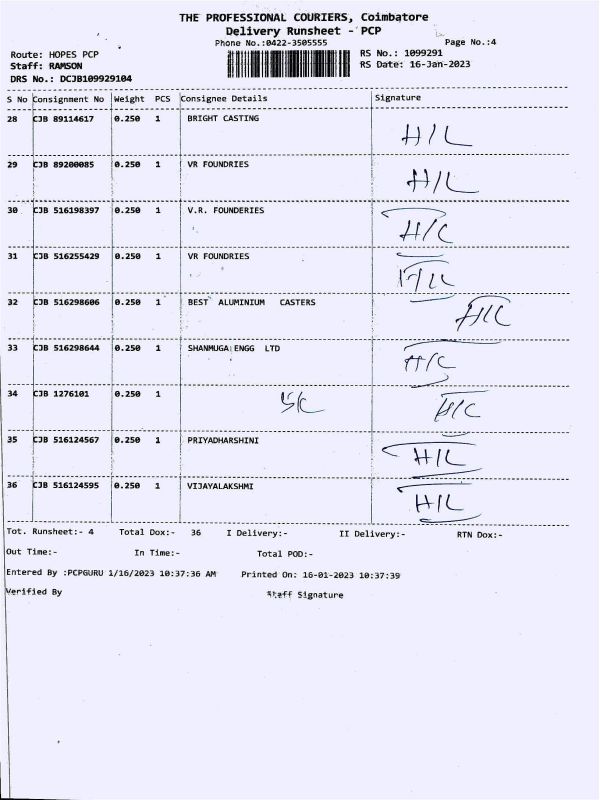 THE PROFESSIONAL COURIERS, Coimbatore
Delivery Runsheet - PCP
Phone No.:0422-3505555 Page No.:4
Route: HOPES PCP RS No.: 1099291
Staff: RAMSON RS Date: 16-Jan-2023
DRS No.: DCJB109929104
S No Consignment No Weight PCS Consignee Details Signature
28 CJB 89114617 0.250 1 BRIGHT CASTING H/L
29 CJB 89200085 0.250 1 VR FOUNDRIES H/L
30 CJB 516198397 0.250 1 V.R. FOUNDERIES H/L
31 CJB 516255429 0.250 1 VR FOUNDRIES H/L
32 CJB 516298606 0.250 1 BEST ALUMINIUM CASTERS H/L
33 CJB 516298644 0.250 1 SHANMUGA ENGG LTD H/L
34 CJB 1276101 0.250 1 H/L
35 CJB 516124567 0.250 1 PRIYADHARSHINI H/L
36 CJB 516124595 0.250 1 VIJAYALAKSHMI H/L
Tot. Runsheet:- 4 Total Dox:- 36 I Delivery:- II Delivery:- RTN Dox:-
Out Time:- In Time:- Total POD:-
Entered By :PCPGURU 1/16/2023 10:37:36 AM Printed On: 16-01-2023 10:37:39
Verified By Staff Signature